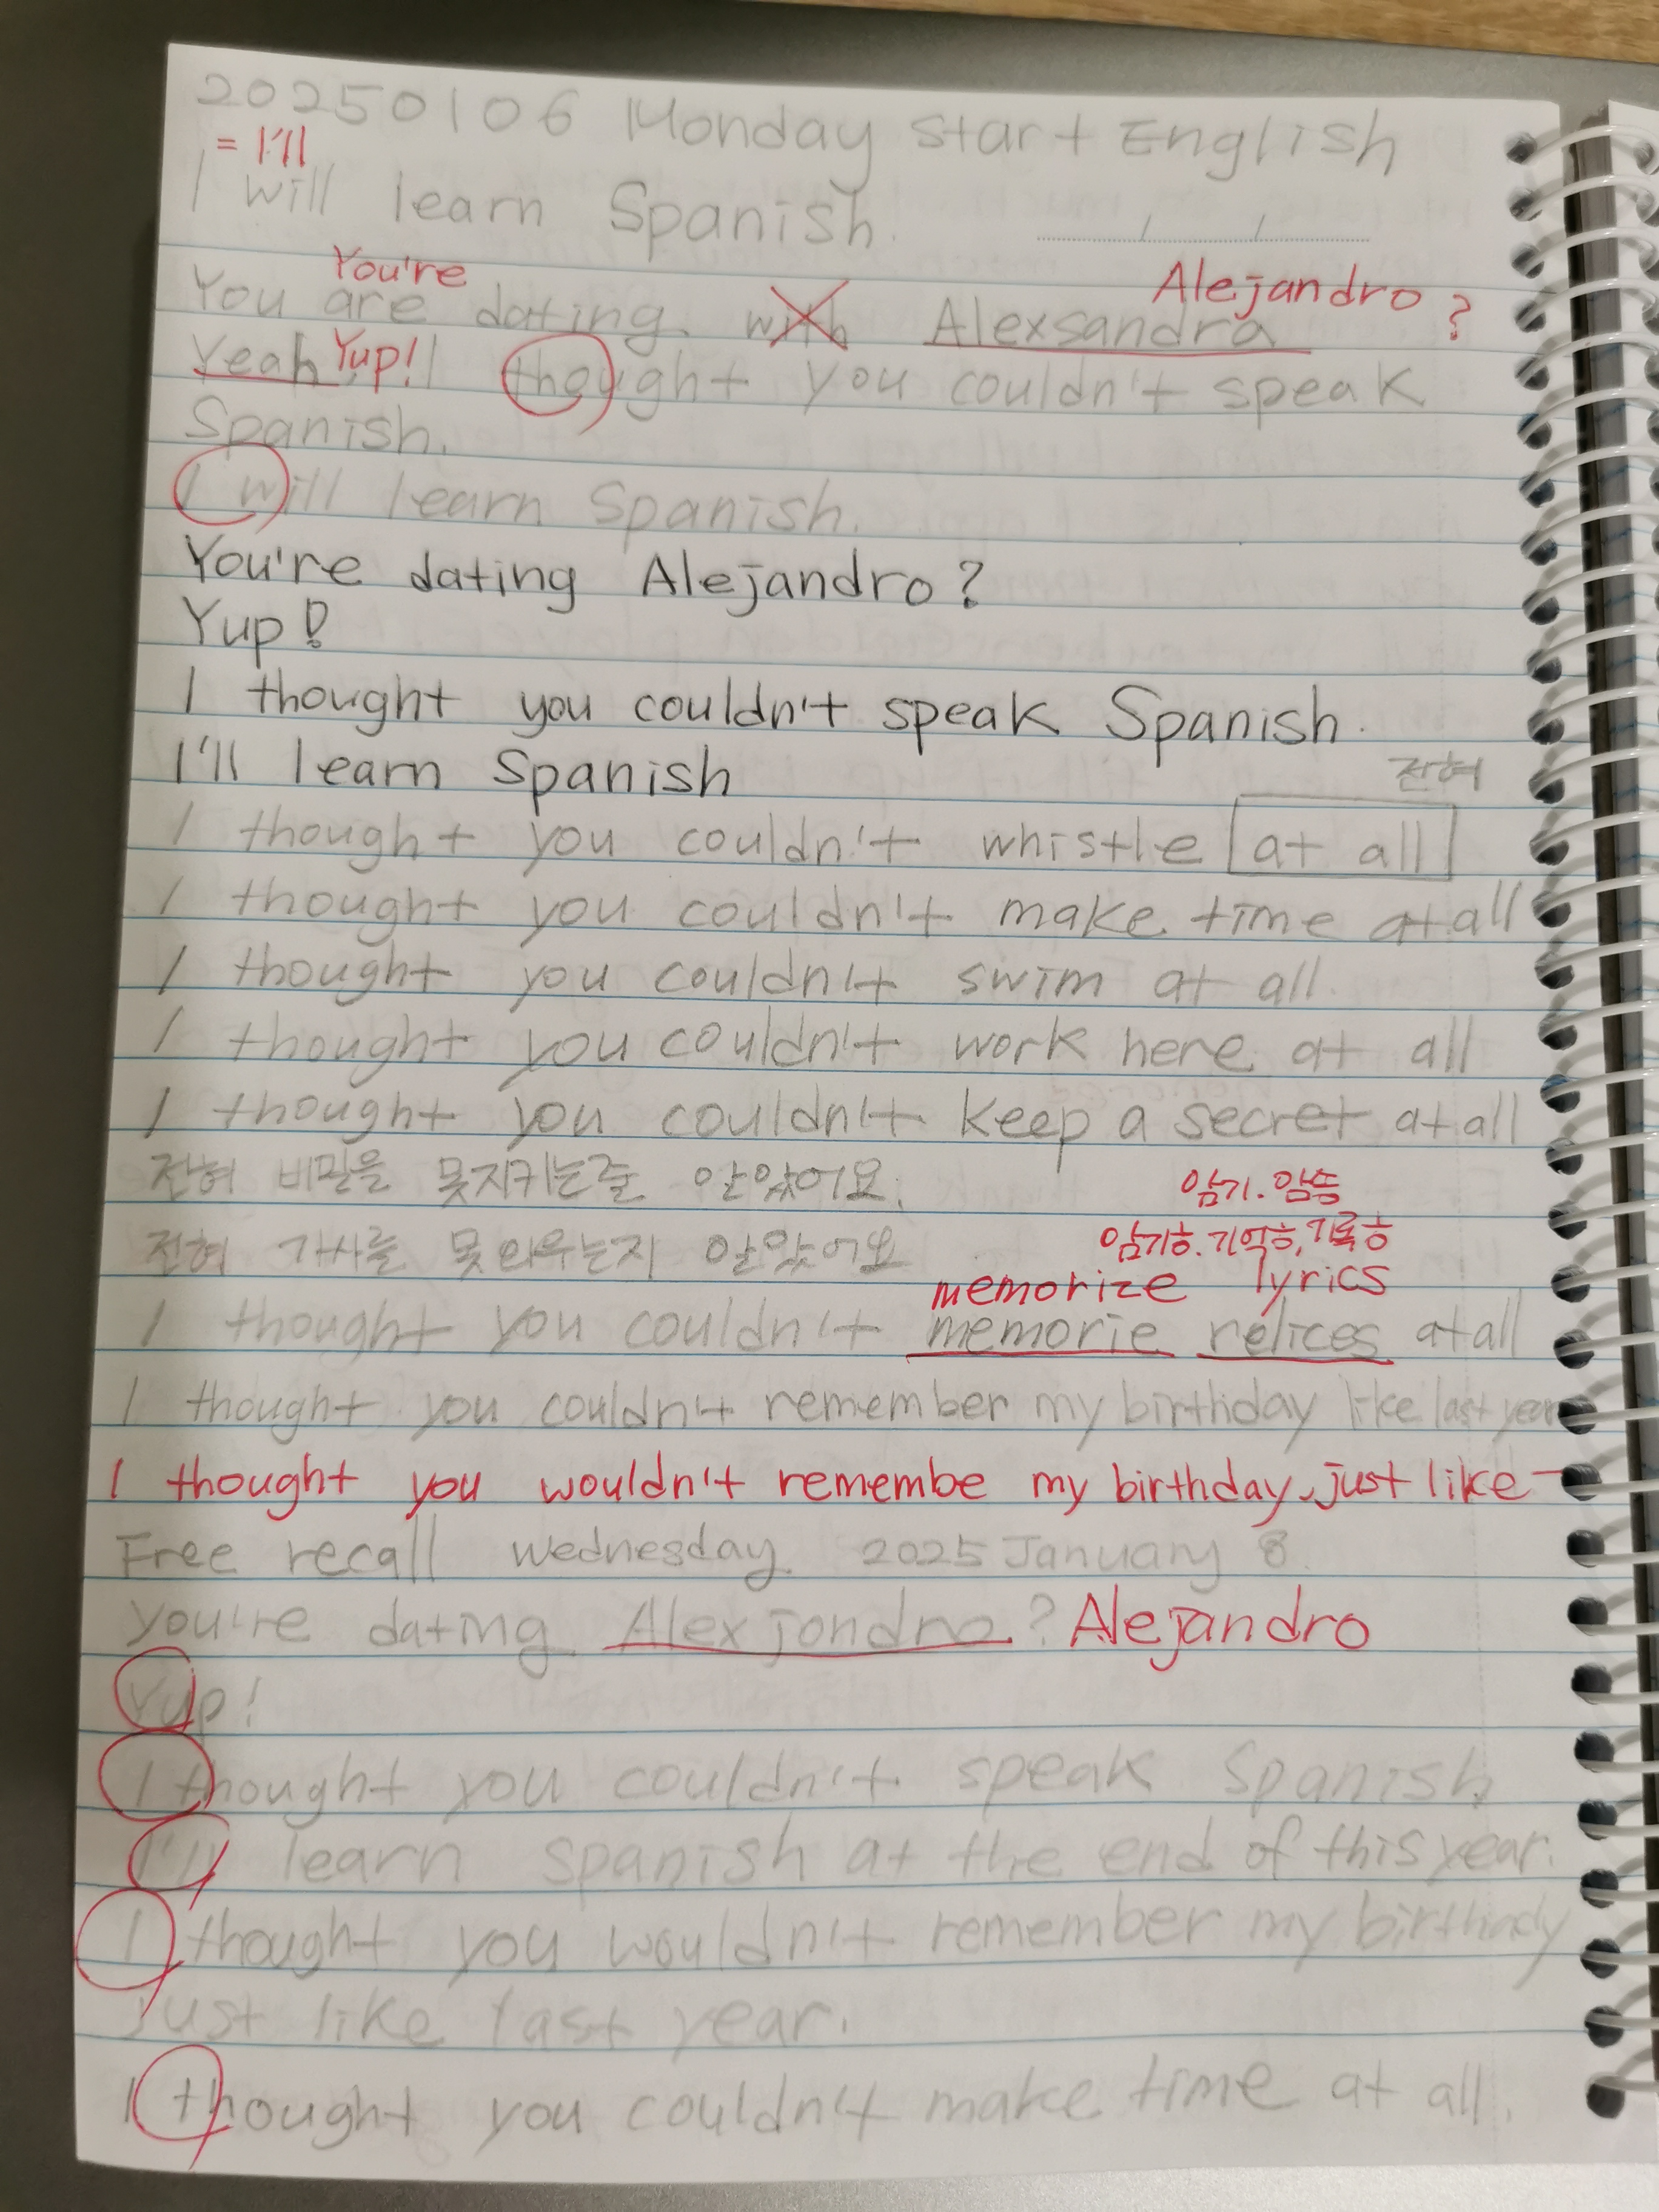 20250106 Monday start English
= I'll
I will learn Spanish.
You're Alejandro ?
You are dating with Alexsandra
Yeah Yup! I thought you couldn't speak
Spanish.
I will learn Spanish.
You're dating Alejandro?
Yup!
I thought you couldn't speak Spanish.
I'll learn Spanish
전혀
I thought you couldn't whistle at all
I thought you couldn't make time at all
I thought you couldn't swim at all.
I thought you couldn't work here at all
I thought you couldn't keep a secret at all
전혀 비밀을 못지키는줄 알았어요.
암기. 암송
전혀 가사를 못 외우는지 알았어요
암기하. 기억하, 기록하
memorize lyrics
I thought you couldn't memorie relices at all
I thought you couldn't remember my birthday like last year
I thought you wouldn't remembe my birthday, just like
Free recall wednesday 2025 January 8.
you're dating Alexjondro ? Alejandro
Yup!
I thought you couldn't speak Spanish
I'll learn spanish at the end of this year.
I thought you wouldn't remember my birthady
just like last year.
I thought you couldn't make time at all.